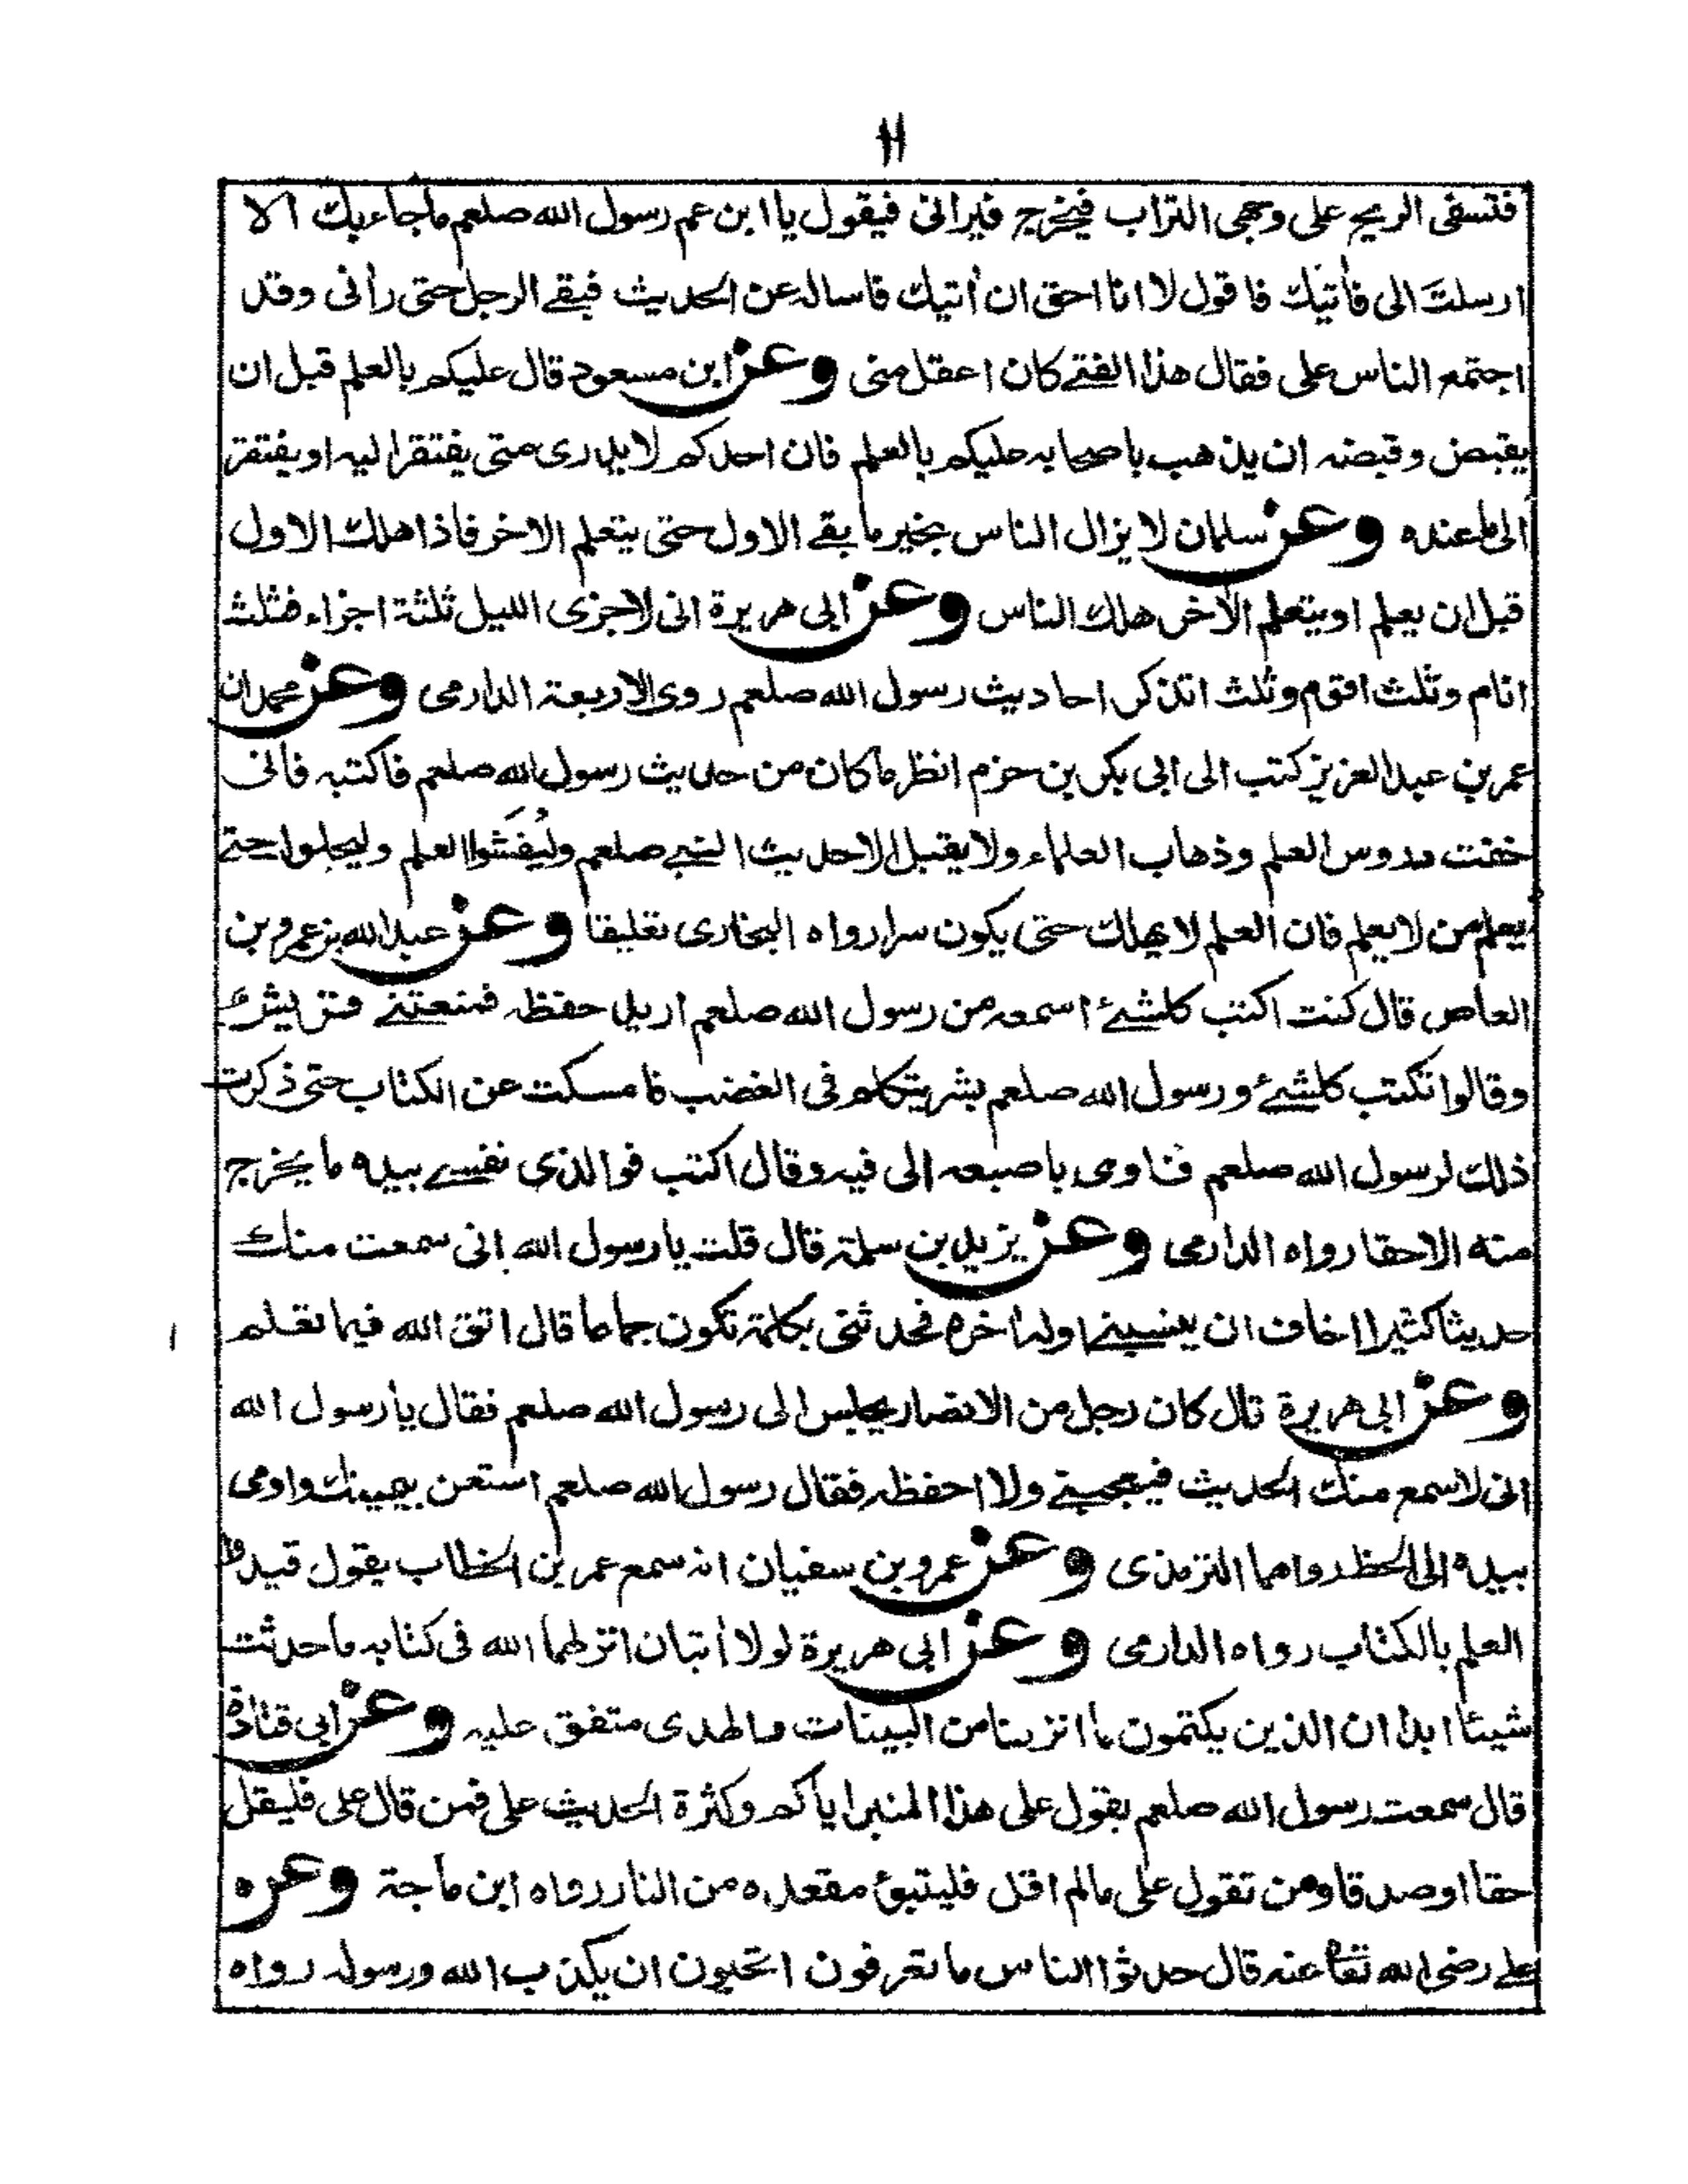 ١١
فتسفی الریح علی وجهی التراب فیخرج فیرانی فیقول یا ابن عم رسول الله صلعم ماجاءبك الا
ارسلتَ الی فأتیك فاقول لا انا احق ان أتیك فاساله عن الحدیث فبقے الرجل حتی رأنی وقد
اجتمع الناس علی فقال هذا الفتے کان اعقل منی وعن ابن مسعود قال علیکم بالعلم قبل ان
یقبض وقبضه ان یذهب باصحابه علیکم بالعلم فان احدکم لا یدری متی یفتقر الیه او یفتقر
الی ما عنده وعن سلمان لا یزال الناس بخیر ما بقے الاول حتی یتعلم الاخر فاذا هلك الاول
قبل ان یعلم او یتعلم الأخر هلك الناس وعن ابی هریرة انی لاجزی اللیل ثلثة اجزاء فثلث
انام وثلث اقوم وثلث اتذکر احادیث رسول الله صلعم روی الاربعة الدارمی وعن محمد ان
عمر بن عبد العزیز کتب الی ابی بکر بن حزم انظر ما کان من حدیث رسول الله صلعم فاکتبه فانی
خفت دروس العلم وذهاب العلماء ولا یقبل الا حدیث النبے صلعم ولیُفشَوا العلم ولیجلسوا حتے
یعلم من لا یعلم فان العلم لا یهلك حتی یکون سرا رواه البخاری تعلیقا وعن عبد الله بن عمرو بن
العاص قال کنت اکتب کلشئ اسمعه من رسول الله صلعم ارید حفظه فمنعتنے قریش
وقالوا تکتب کلشئ ورسول الله صلعم بشر یتکلم فی الغضب فامسکت عن الکتاب حتی ذکرت
ذلك لرسول الله صلعم فاومی باصبعه الی فیه وقال اکتب فوالذی نفسے بیده ما یخرج
منه الا حقا رواه الدارمی وعن یزید بن سلمة قال قلت یا رسول الله انی سمعت منك
حدیثا کثیرا اخاف ان ینسینے اوله أخره فحدثنی بکلمة تکون جماعا قال اتق الله فیما تعلم
وعن ابی هریرة قال کان رجل من الانصار یجلس الی رسول الله صلعم فقال یا رسول الله
انی لاسمع منك الحدیث فیعجبنے ولا احفظه فقال رسول الله صلعم استعن بیمینك واومی
بیده الی الخط رواهما الترمذی وعن عمرو بن سفیان انه سمع عمر بن الخطاب یقول قیدوا
العلم بالکتاب رواه الدارمی وعن ابی هریرة لولا أیتان انزلهما الله فی کتابه ما حدثت
شیئا ابدا ان الذین یکتمون ما انزلنا من البینات والهدی متفق علیه وعن ابی قتادة
قال سمعت رسول الله صلعم یقول علی هذا المنبر ایاکم وکثرة الحدیث علی فمن قال علی فلیقل
حقا او صدقا ومن تقول علی مالم اقل فلیتبوئ مقعده من النار رواه ابن ماجة وعن
علے رضی الله تعا عنه قال حدثوا الناس ما تعرفون اتحبون ان یکذب الله ورسوله رواه